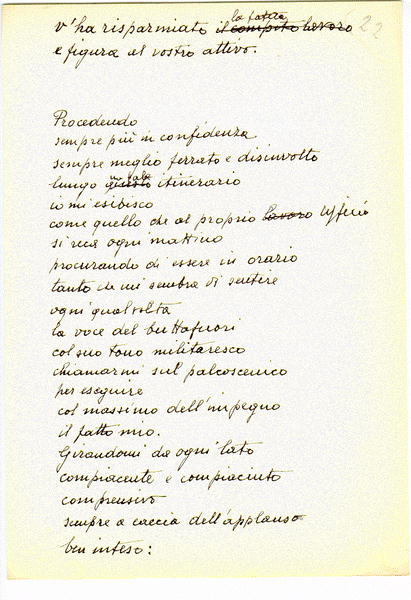 la fatica 22
v'ha risparmiato il compito lavoro
e figura al vostro attivo.
Procedendo
sempre più in confidenza
sempre meglio ferrato e disinvolto
un tale
lungo questo itinerario
io mi esibisco
come quello che al proprio lavoro Ufficio
si reca ogni mattino
procurando di essere in orario
tanto che mi sembra di sentire
ogni qual volta
la voce del buttafuori
col suo tono militaresco
chiamarmi sul palcoscenico
per eseguire
col massimo dell'impegno
il fatto mio.
Girandomi da ogni lato
compiacente e compiaciuto
comprensivo
sempre a caccia dell'applauso
ben inteso: